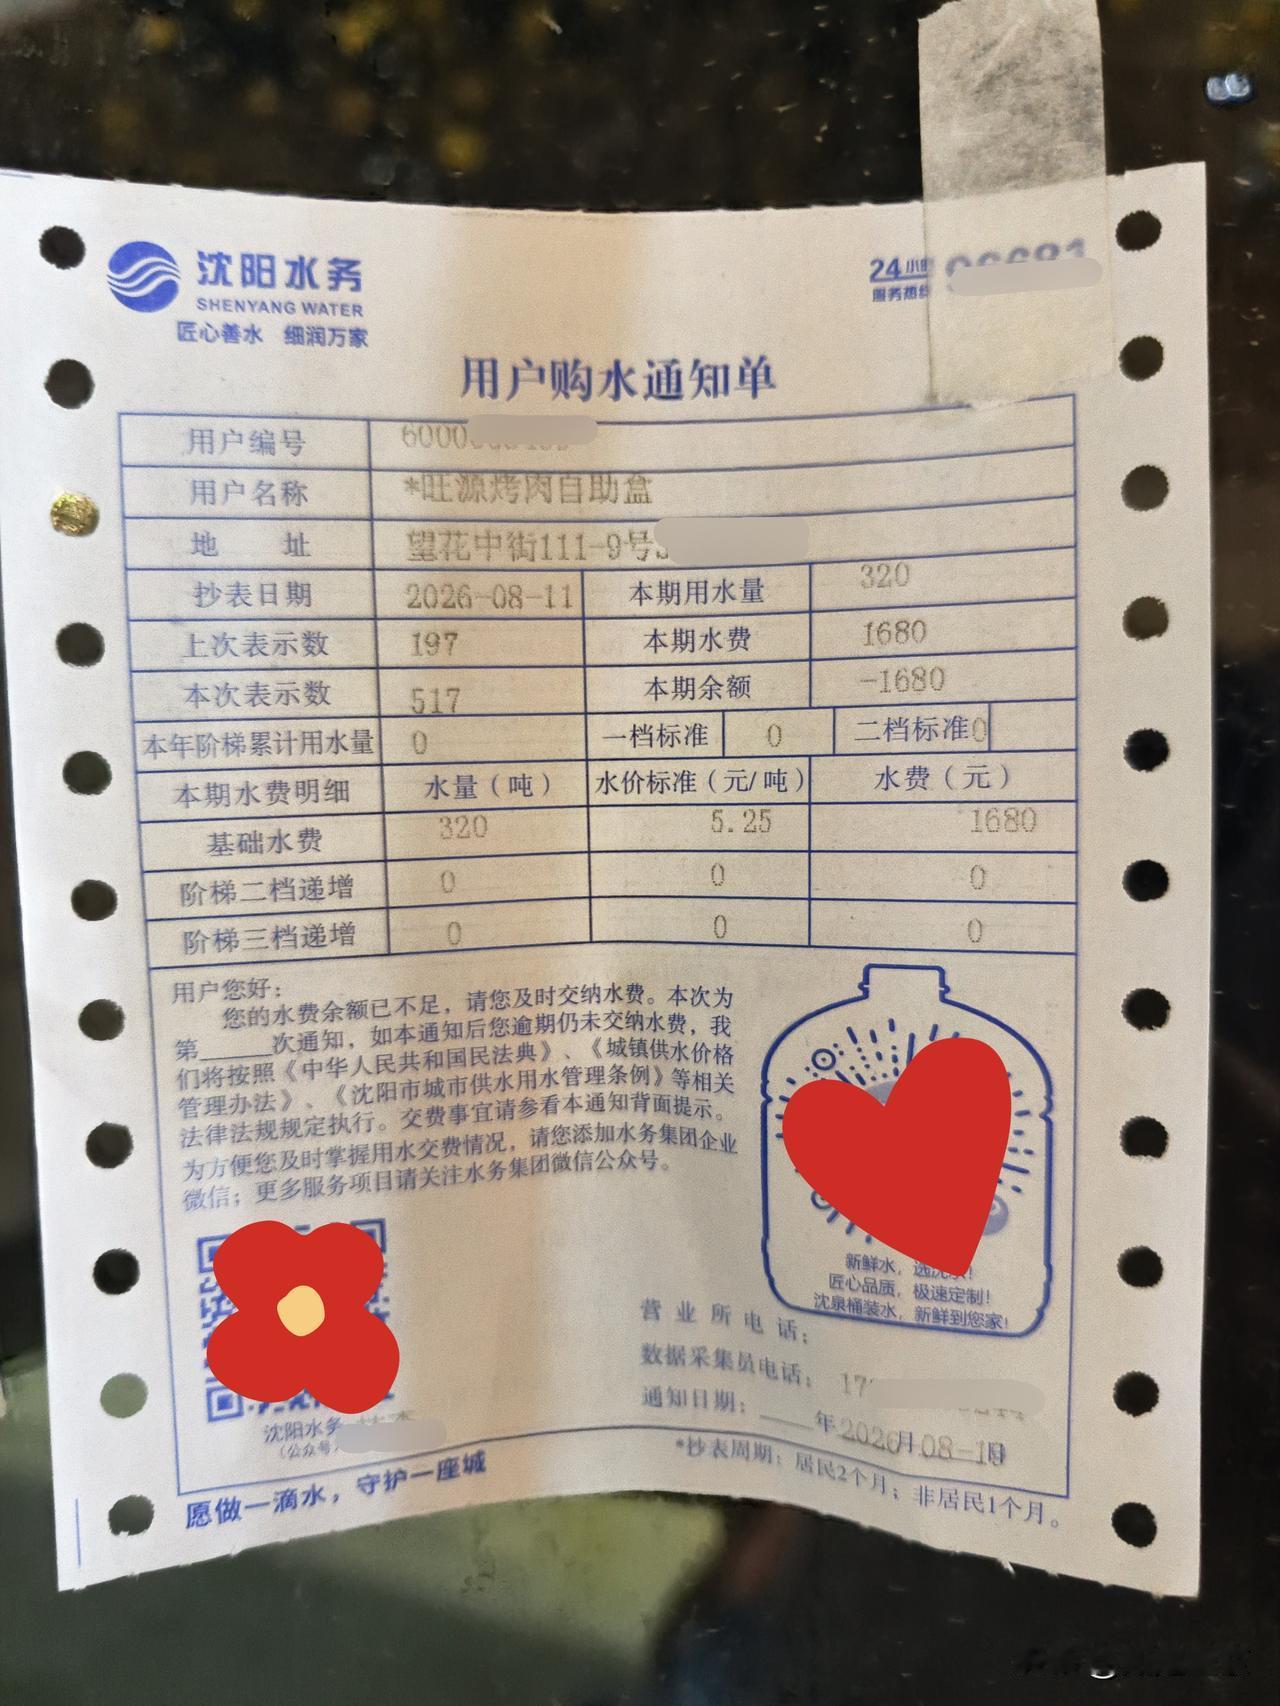 沈阳水务
SHENYANG WATER
匠心善水 细润万家
24小时
服务热线
用户购水通知单
用户编号 6000
用户名称 *旺源烤肉自助盒
地 址 望花中街111-9号
抄表日期 2026-08-11 本期用水量 320
上次表示数 197 本期水费 1680
本次表示数 517 本期余额 -1680
本年阶梯累计用水量 0 一档标准 0 二档标准 0
本期水费明细 水量（吨） 水价标准（元/吨） 水费（元）
基础水费 320 5.25 1680
阶梯二档递增 0 0 0
阶梯三档递增 0 0 0
用户您好：
您的水费余额已不足，请您及时交纳水费。本次为
第______次通知，如本通知后您逾期仍未交纳水费，我
们将按照《中华人民共和国民法典》、《城镇供水价格
管理办法》、《沈阳市城市供水用水管理条例》等相关
法律法规规定执行。交费事宜请参看本通知背面提示。
为方便您及时掌握用水交费情况，请您添加水务集团企业
微信；更多服务项目请关注水务集团微信公众号。
新鲜水，选沈水！
匠心品质，极速定制！
沈泉桶装水，新鲜到您家！
营业所电话：
数据采集员电话： 17
通知日期：____年 2026 月 08-1 日
沈阳水务
（公众号）
*抄表周期：居民2个月；非居民1个月。
愿做一滴水，守护一座城